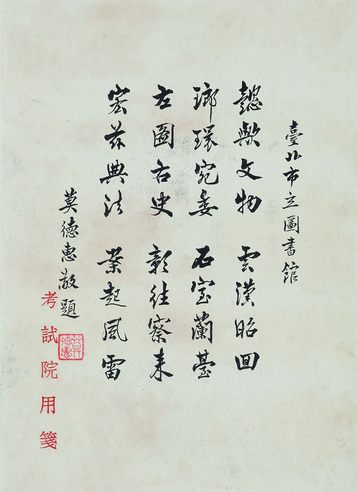 臺北市立圖書館
懿歟文物 雲漢昭回
瑯環宛委 石室蘭臺
左圖右史 彰往察来
宏茲典法 業起風雷
莫德惠敬題
考試院用箋